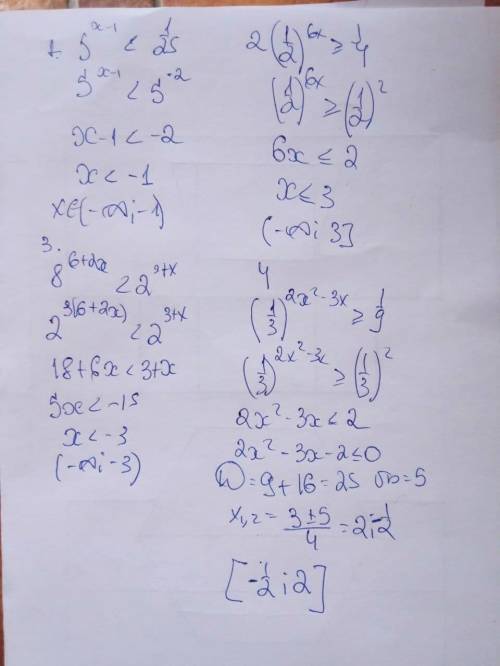 1. 5^(x-1) < 1/25
5^(x-1) < 5^-2
x-1 < -2
x < -1
x∈(-∞; -1)
2 (1/2)^6x ≥ 1/4
(1/2)^6x ≥ (1/2)^2
6x ≤ 2
x ≤ 3
(-∞; 3]
3.
8^(6+2x) < 2^(3+x)
2^3(6+2x) < 2^(3+x)
18+6x < 3+x
5x < -15
x < -3
(-∞; -3)
4
(1/3)^(2x²-3x) ≥ 1/9
(1/3)^(2x²-3x) ≥ (1/3)^2
2x²-3x ≤ 2
2x²-3x-2 ≤ 0
D = 9+16 = 25 √D = 5
x1,2 = (3±5)/4 = 2; -1/2
[-1/2; 2]